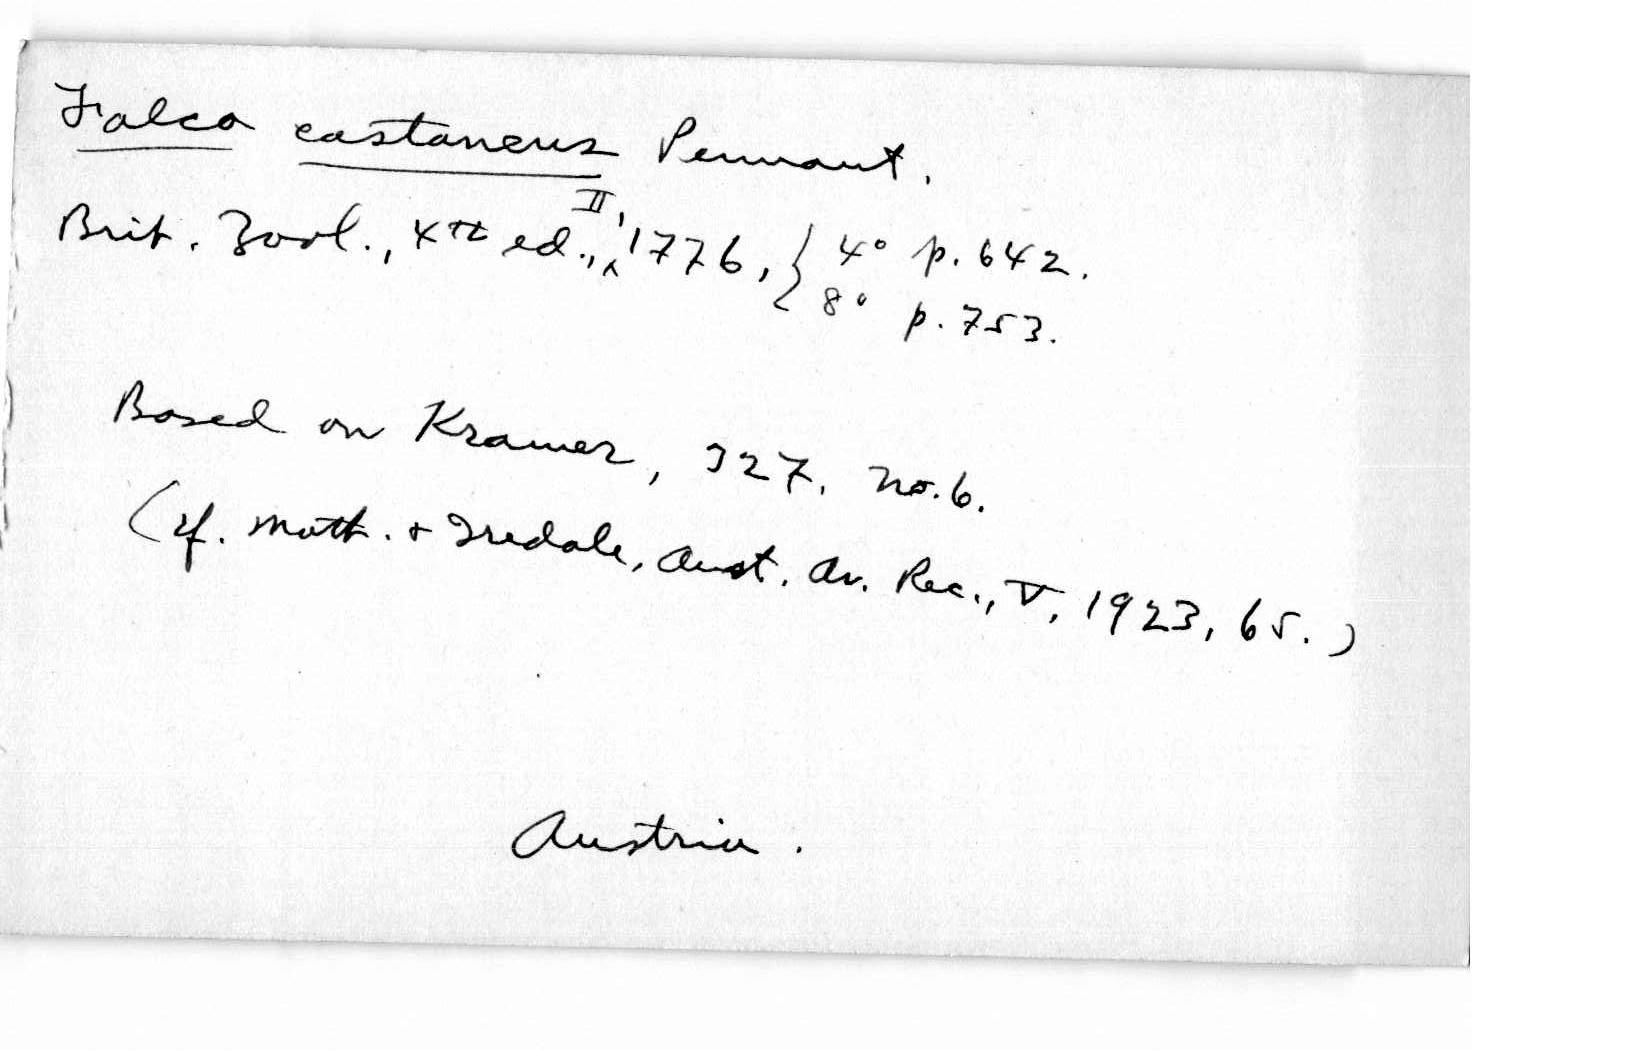 Falco castaneus Pennant.
Brit. Zool., 4th ed., II, 1776, { 4° p. 642.
8° p. 753.
Based on Kramer, 327, no. 6.
(cf. Math. & Iredale, Aust. Av. Rec., V, 1923, 65.)
Austria.